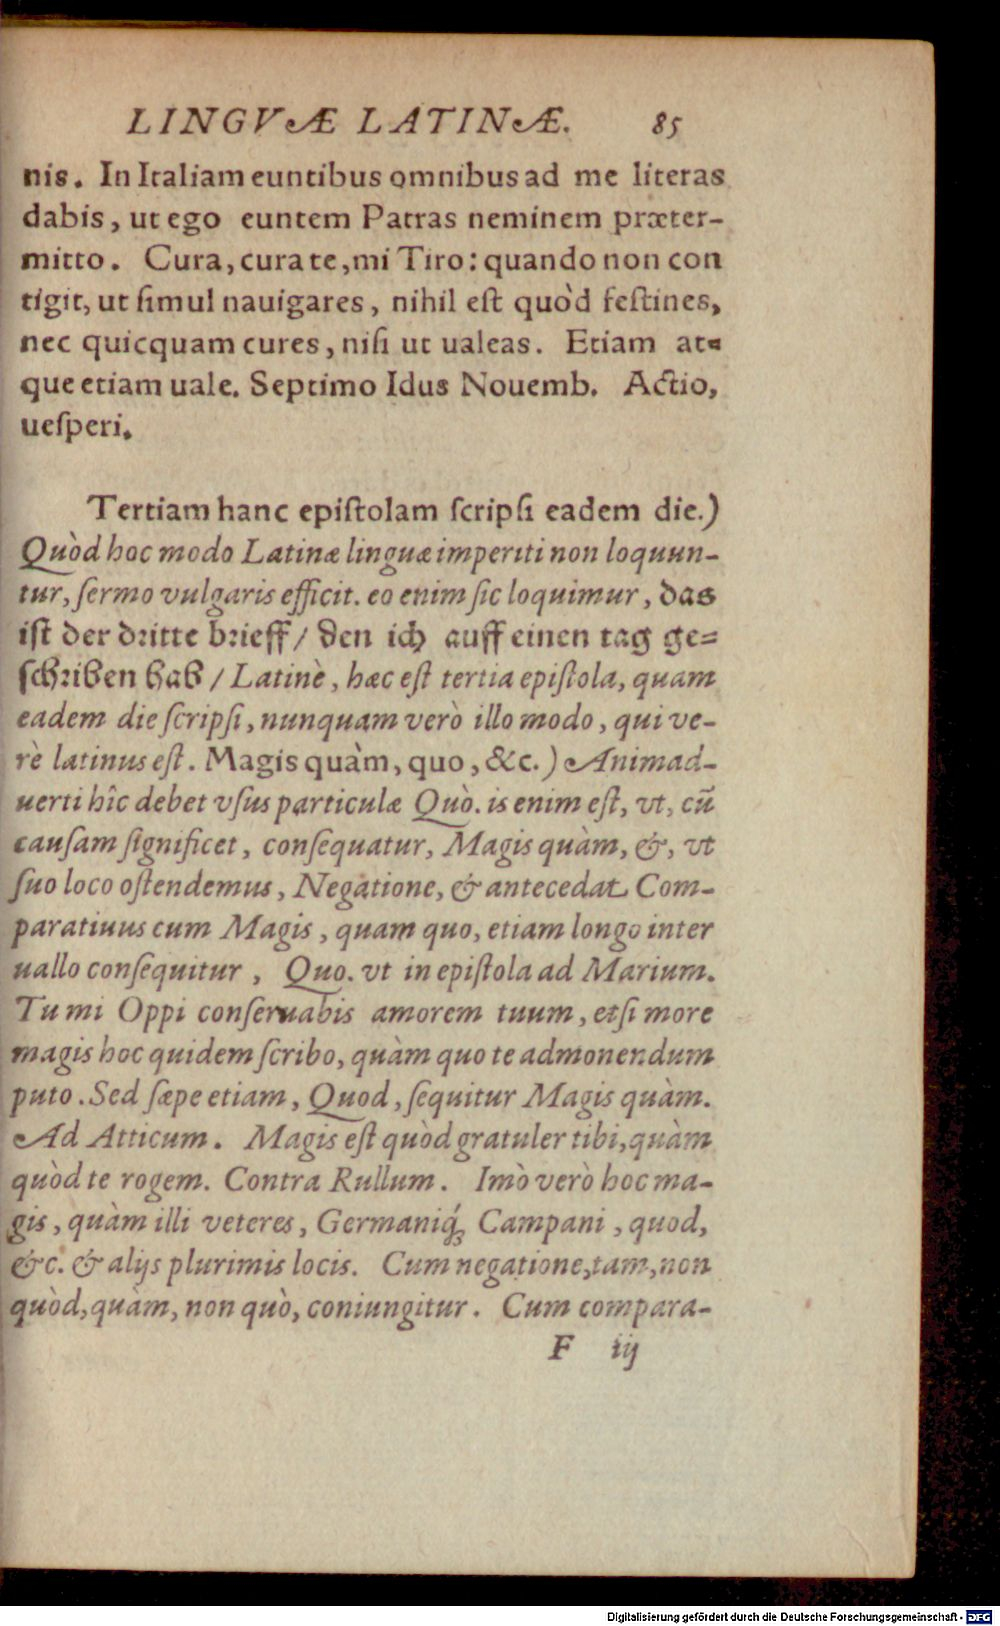 LINGVÆ LATINÆ. 85
nis. In Italiam euntibus omnibus ad me literas
dabis, ut ego euntem Patras neminem præter-
mitto. Cura, cura te, mi Tiro: quando non con
tigit, ut ſimul nauigares, nihil eſt quòd feſtines,
nec quicquam cures, niſi ut ualeas. Etiam at-
que etiam uale. Septimo Idus Nouemb. Actio,
ueſperi.
Tertiam hanc epiſtolam ſcripſi eadem die.)
Quòd hoc modo Latinæ linguæ imperiti non loquun-
tur, ſermo vulgaris efficit. eo enim ſic loquimur, das
iſt der dritte brieff / den ich auff einen tag ge=
ſchriben hab / Latinè, hæc eſt tertia epiſtola, quam
eadem die ſcripſi, nunquam verò illo modo, qui ve-
rè latinus eſt. Magis quàm, quo, &c.) Animad-
uerti hîc debet vſus particulæ Quò. is enim eſt, vt, cū
cauſam ſignificet, conſequatur, Magis quàm, &, vt
ſuo loco oſtendemus, Negatione, & antecedat Com-
paratiuus cum Magis, quam quo, etiam longo inter
uallo conſequitur, Quo. vt in epiſtola ad Marium.
Tu mi Oppi conſeruabis amorem tuum, etſi more
magis hoc quidem ſcribo, quàm quo te admonendum
puto. Sed ſæpe etiam, Quod, ſequitur Magis quàm.
Ad Atticum. Magis eſt quòd gratuler tibi, quàm
quòd te rogem. Contra Rullum. Imò verò hoc ma-
gis, quàm illi veteres, Germaniq́; Campani, quod,
&c. & alijs plurimis locis. Cum negatione, tam, non
quòd, quàm, non quò, coniungitur. Cum compara-
F iij
Digitalisierung gefördert durch die Deutsche Forschungsgemeinschaft - DFG